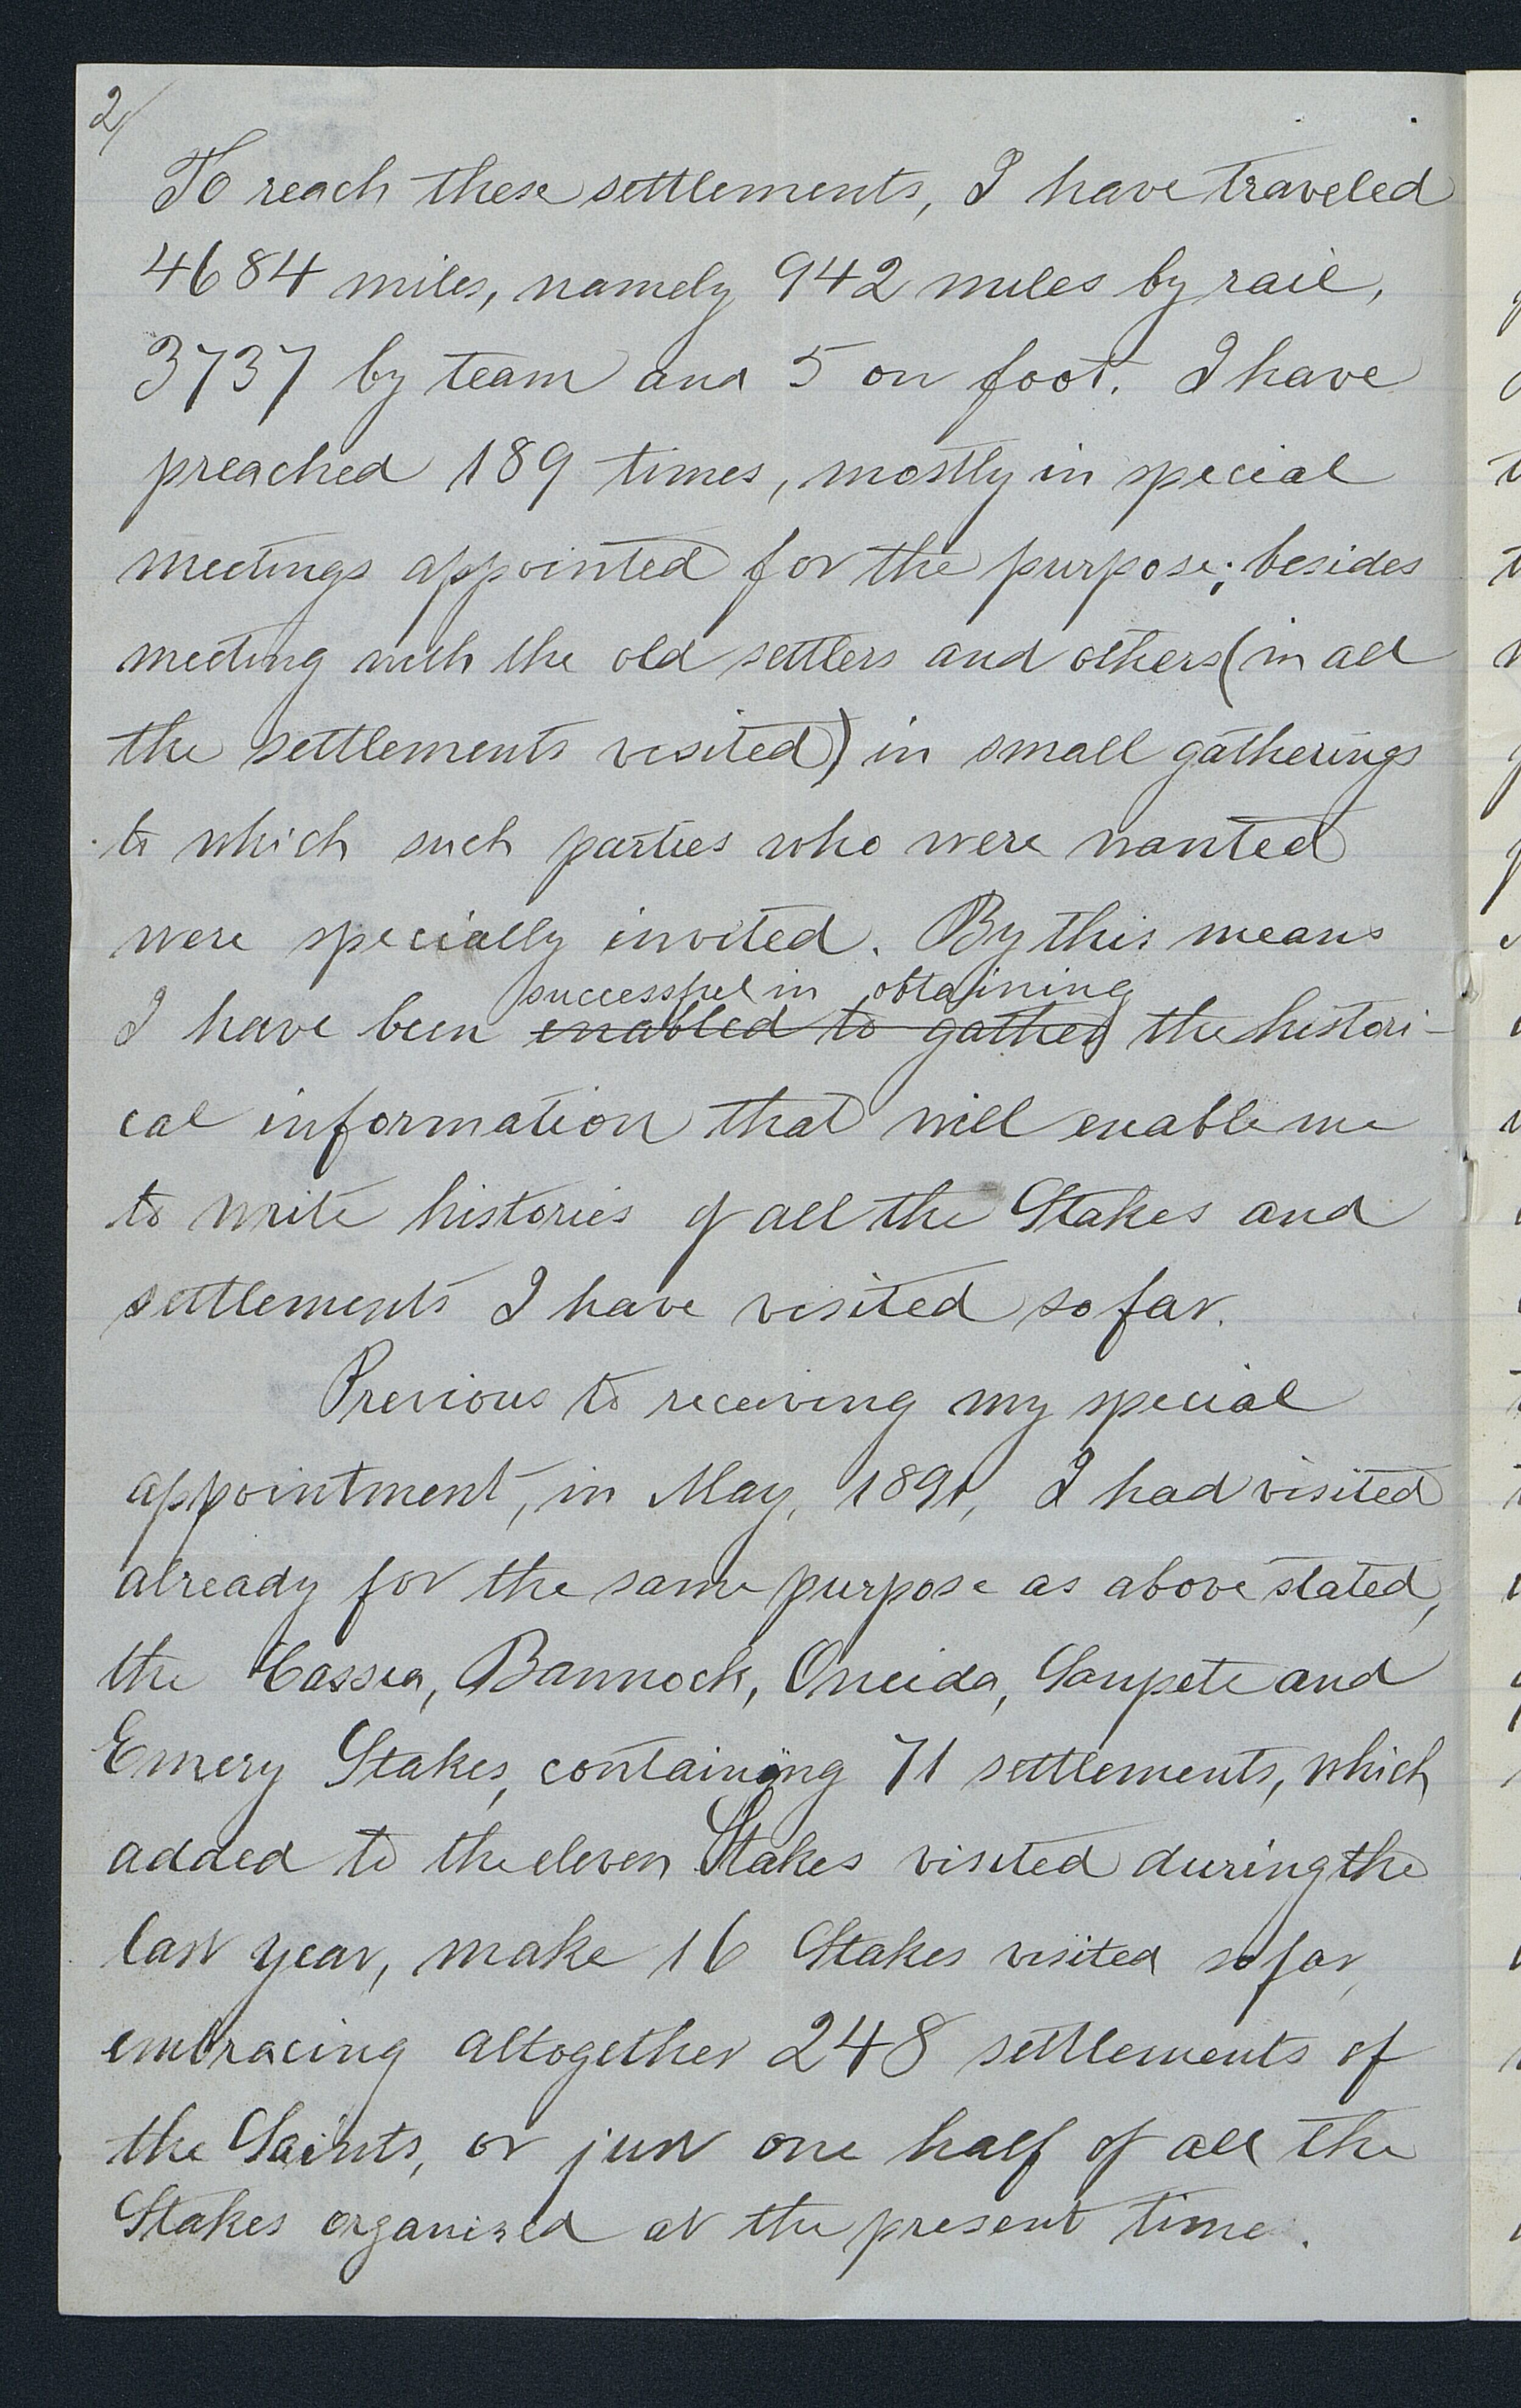 2/
To reach these settlements, I have traveled
4684 miles, namely 942 miles by rail,
3737 by team and 5 on foot. I have
preached 189 times, mostly in special
meetings appointed for the purpose; besides
meeting with the old settlers and others (in all
the settlements visited) in small gatherings
to which such parties who were wanted
were specially invited. By this means
successful in obtaining
I have been enabled to gather the histori-
cal information that will enable me
to write histories of all the Stakes and
settlements I have visited so far.
Previous to receiving my special
appointment, in May, 1891, I had visited
already for the same purpose as above stated,
the Cassia, Bannock, Oneida, Sanpete and
Emery Stakes, containing 71 settlements, which
added to the eleven Stakes visited during the
last year, make 16 Stakes visited so far,
embracing altogether 248 settlements of
the Saints, or just one half of all the
Stakes organized at the present time.